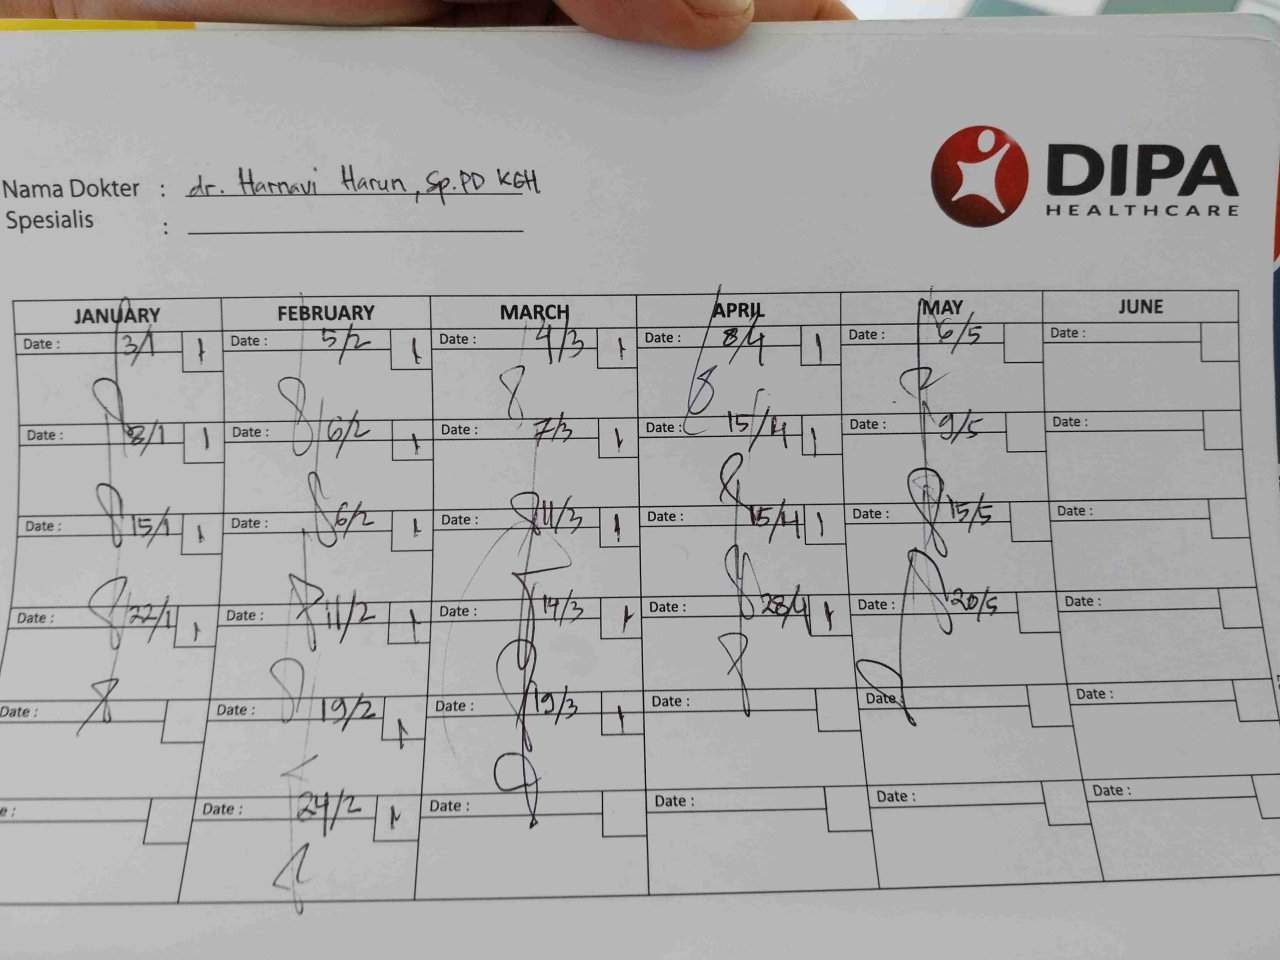 DIPA
HEALTHCARE
Nama Dokter : dr. Harnavi Harun, Sp.PD KGH
Spesialis :
JANUARY FEBRUARY MARCH APRIL MAY JUNE
Date : 3/1 1 Date : 5/2 1 Date : 4/3 1 Date : 8/4 1 Date : 6/5 Date :
Date : 8/1 1 Date : 6/2 1 Date : 7/3 1 Date : 15/4 1 Date : 9/5 Date :
Date : 15/1 1 Date : 6/2 1 Date : 11/3 1 Date : 15/4 1 Date : 15/5 Date :
Date : 22/1 1 Date : 11/2 1 Date : 14/3 1 Date : 28/4 1 Date : 20/5 Date :
Date : Date : 19/2 1 Date : 19/3 1 Date : Date Date :
e : Date : 24/2 1 Date : Date : Date : Date :